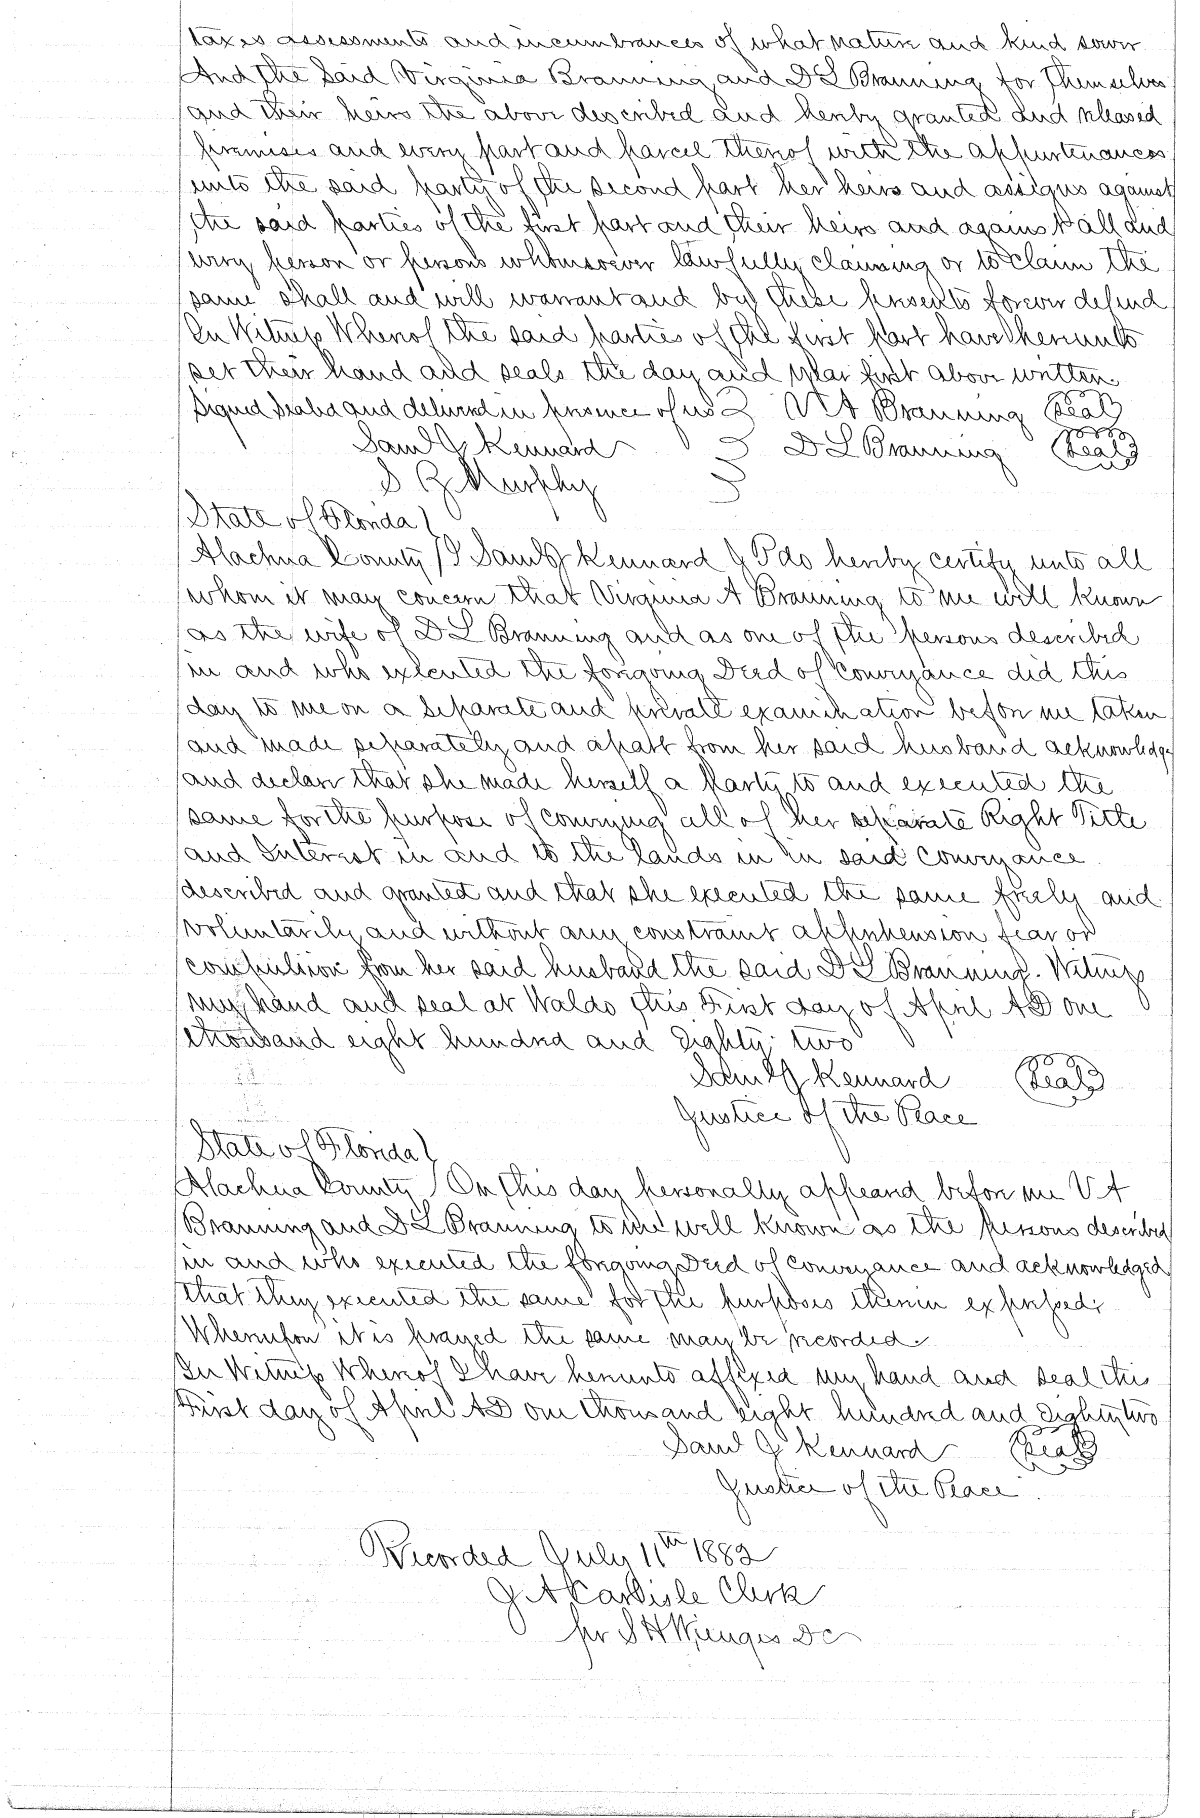 taxes assessments and incumbrances of what nature and kind soever
And the Said Virginia Branning and D L Branning for themselves
and their heirs the above described and hereby granted and released
premises and every part and parcel thereof with the appurtenances
unto the said party of the second part her heirs and assigns against
the said parties of the first part and their heirs and against all and
every person or persons whomsoever lawfully claiming or to claim the
same shall and will warrant and by these presents forever defend
In Witness Whereof the said parties of the first part have hereunto
set their hand and seals the day and year first above written
Signed Sealed and delivered in presence of us V A Branning (Seal)
Saml J Kennard D L Branning (Seal)
S R Murphy
State of Florida
Alachua County I Saml J Kennard J P do hereby certify unto all
whom it may concern that Virginia A Branning to me well known
as the wife of D L Branning and as one of the persons described
in and who executed the foregoing Deed of Conveyance did this
day to me on a separate and private examination before me taken
and made separately and apart from her said husband acknowledge
and declare that she made herself a party to and executed the
same for the purpose of conveying all of her separate Right Title
and Interest in and to the lands in in said Conveyance
described and granted and that she executed the same freely and
voluntarily and without any constraint apprehension fear or
compulsion from her said husband the said D L Branning. Witness
my hand and seal at Waldo this First day of April AD one
thousand eight hundred and Eighty two
Saml J Kennard (Seal)
Justice of the Peace
State of Florida
Alachua County On this day personally appeared before me V A
Branning and D L Branning to me well known as the persons described
in and who executed the foregoing Deed of Conveyance and acknowledged
that they executed the same for the purposes therein expressed.
Whereupon it is prayed the same may be recorded.
In Witness Whereof I have hereunto affixed my hand and seal this
First day of April AD one thousand eight hundred and Eighty two
Saml J Kennard (Seal)
Justice of the Peace
Recorded July 11th 1882
J A Carlisle Clerk
per S H Wienges DC